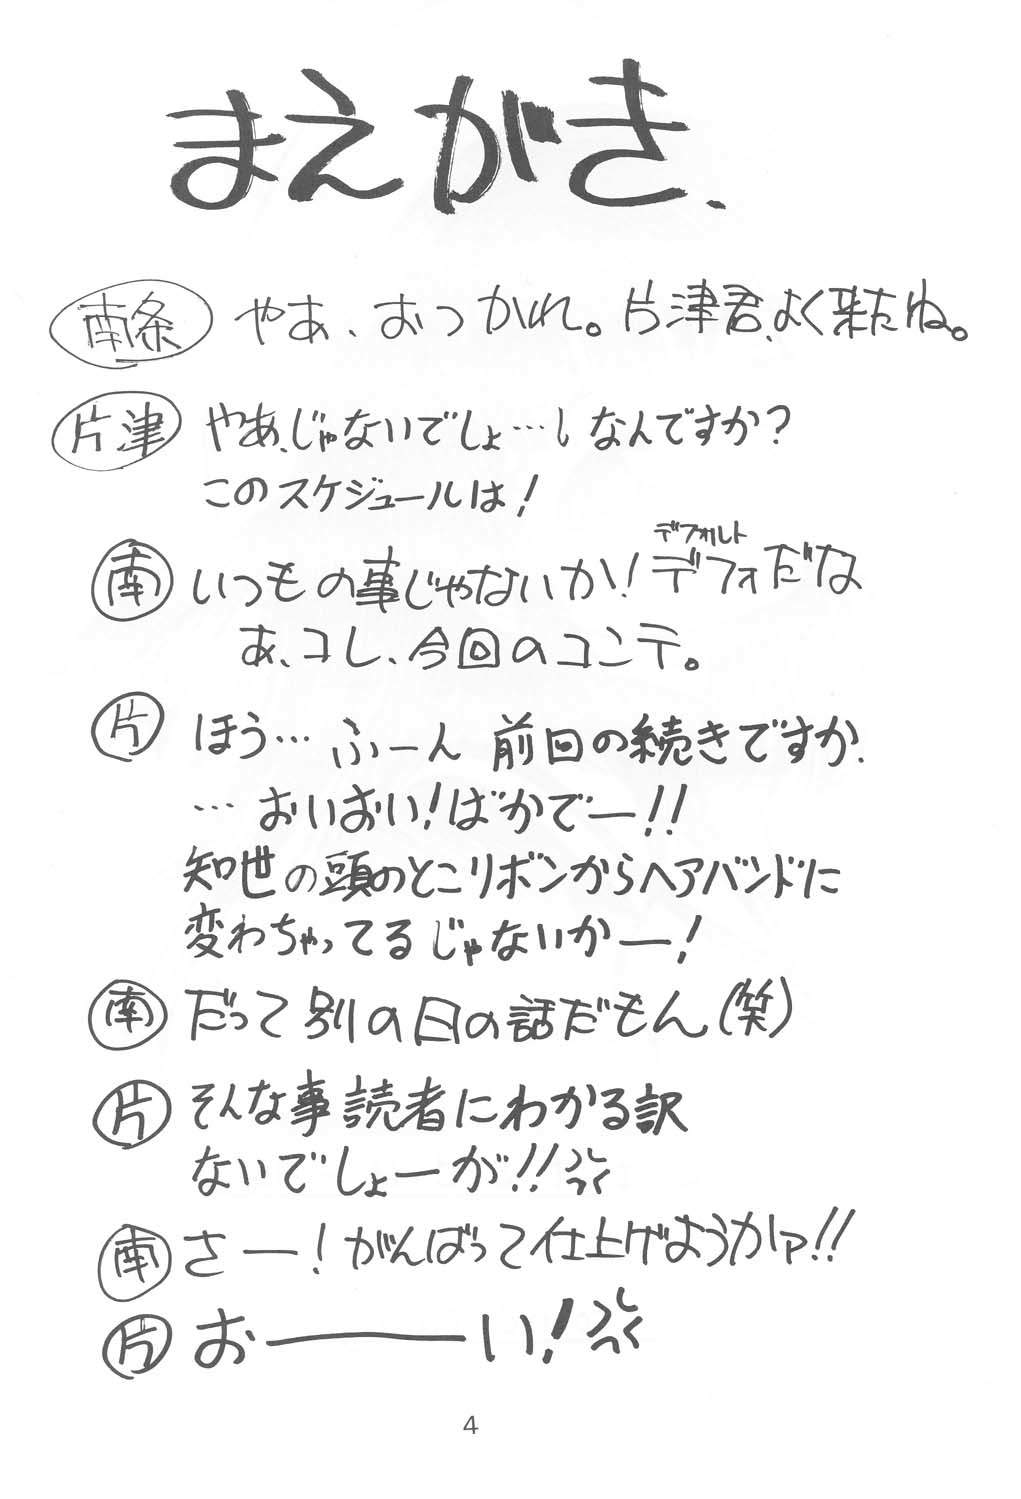 まえがき.
南条 やあ、おつかれ。片津君、よく来たね。
片津 やあ、じゃないでしょ…！なんですか？
このスケジュールは！
デフォルト
南 いつもの事じゃないか！デフォだな
あ、コレ、今回のコンテ。
片 ほう… ふーん 前回の続きですか.
… おいおい！ばかでー！！
知世の頭のとこリボンからヘアバンドに
変わちゃってるじゃないかー！
南 だって別の日の話だもん（笑）
片 そんな事読者にわかる訳
ないでしょーが！！
南 さー！がんばって仕上げようかァ！！
片 おーーーい！
4